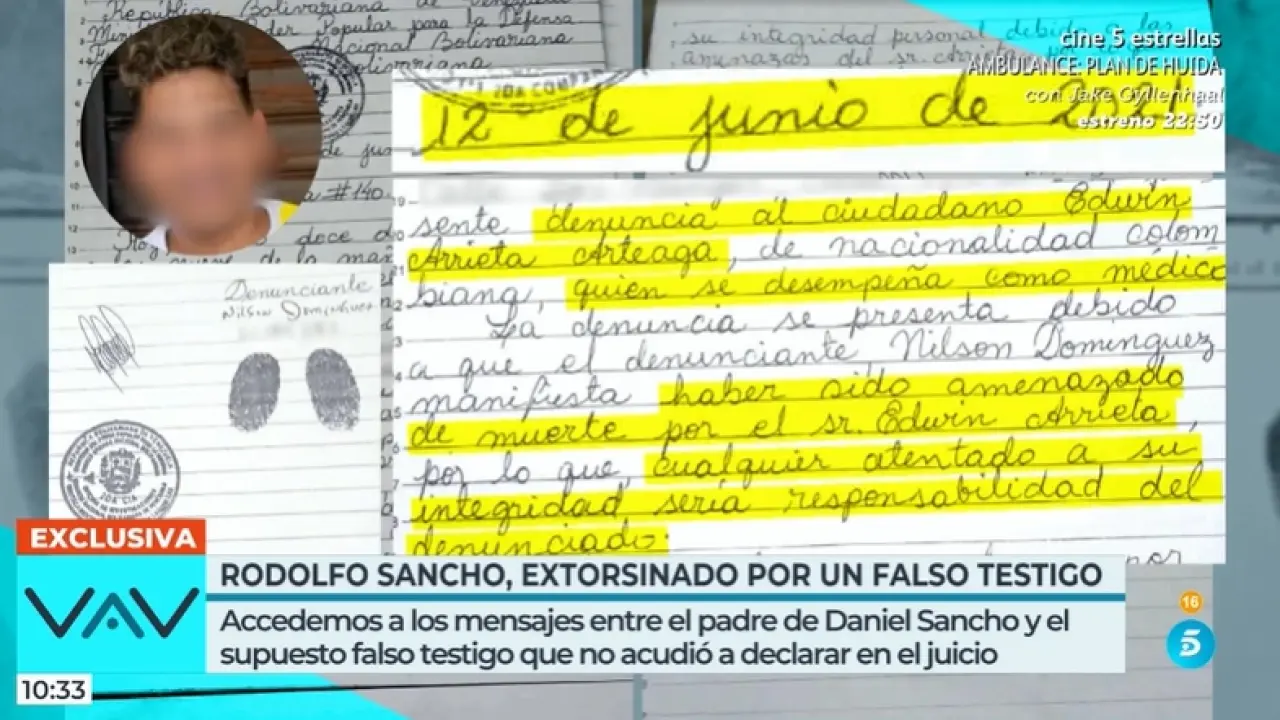 República Bolivariana de Venezuela
Popular para la Defensa
Nacional Bolivariana
su integridad personal debido a las
amenazas del sr. Arrieta
cine 5 estrellas
AMBULANCE: PLAN DE HUIDA
con Jake Gyllenhaal
estreno 22:50
12 de junio de
a #140
doce
sente denuncia al ciudadano Edwin
Arrieta Arteaga, de nacionalidad colom
biana, quien se desempeña como médico
La denuncia se presenta debido
a que el denunciante, Nilson Dominguez
manifiesta haber sido amenazado
de muerte por el sr. Edwin Arrieta,
por lo que, cualquier atentado a su
integridad sería responsabilidad del
denunciado.
Denunciante
Nilson Dominguez
EXCLUSIVA
VAV
RODOLFO SANCHO, EXTORSINADO POR UN FALSO TESTIGO
Accedemos a los mensajes entre el padre de Daniel Sancho y el
supuesto falso testigo que no acudió a declarar en el juicio
16
5
10:33